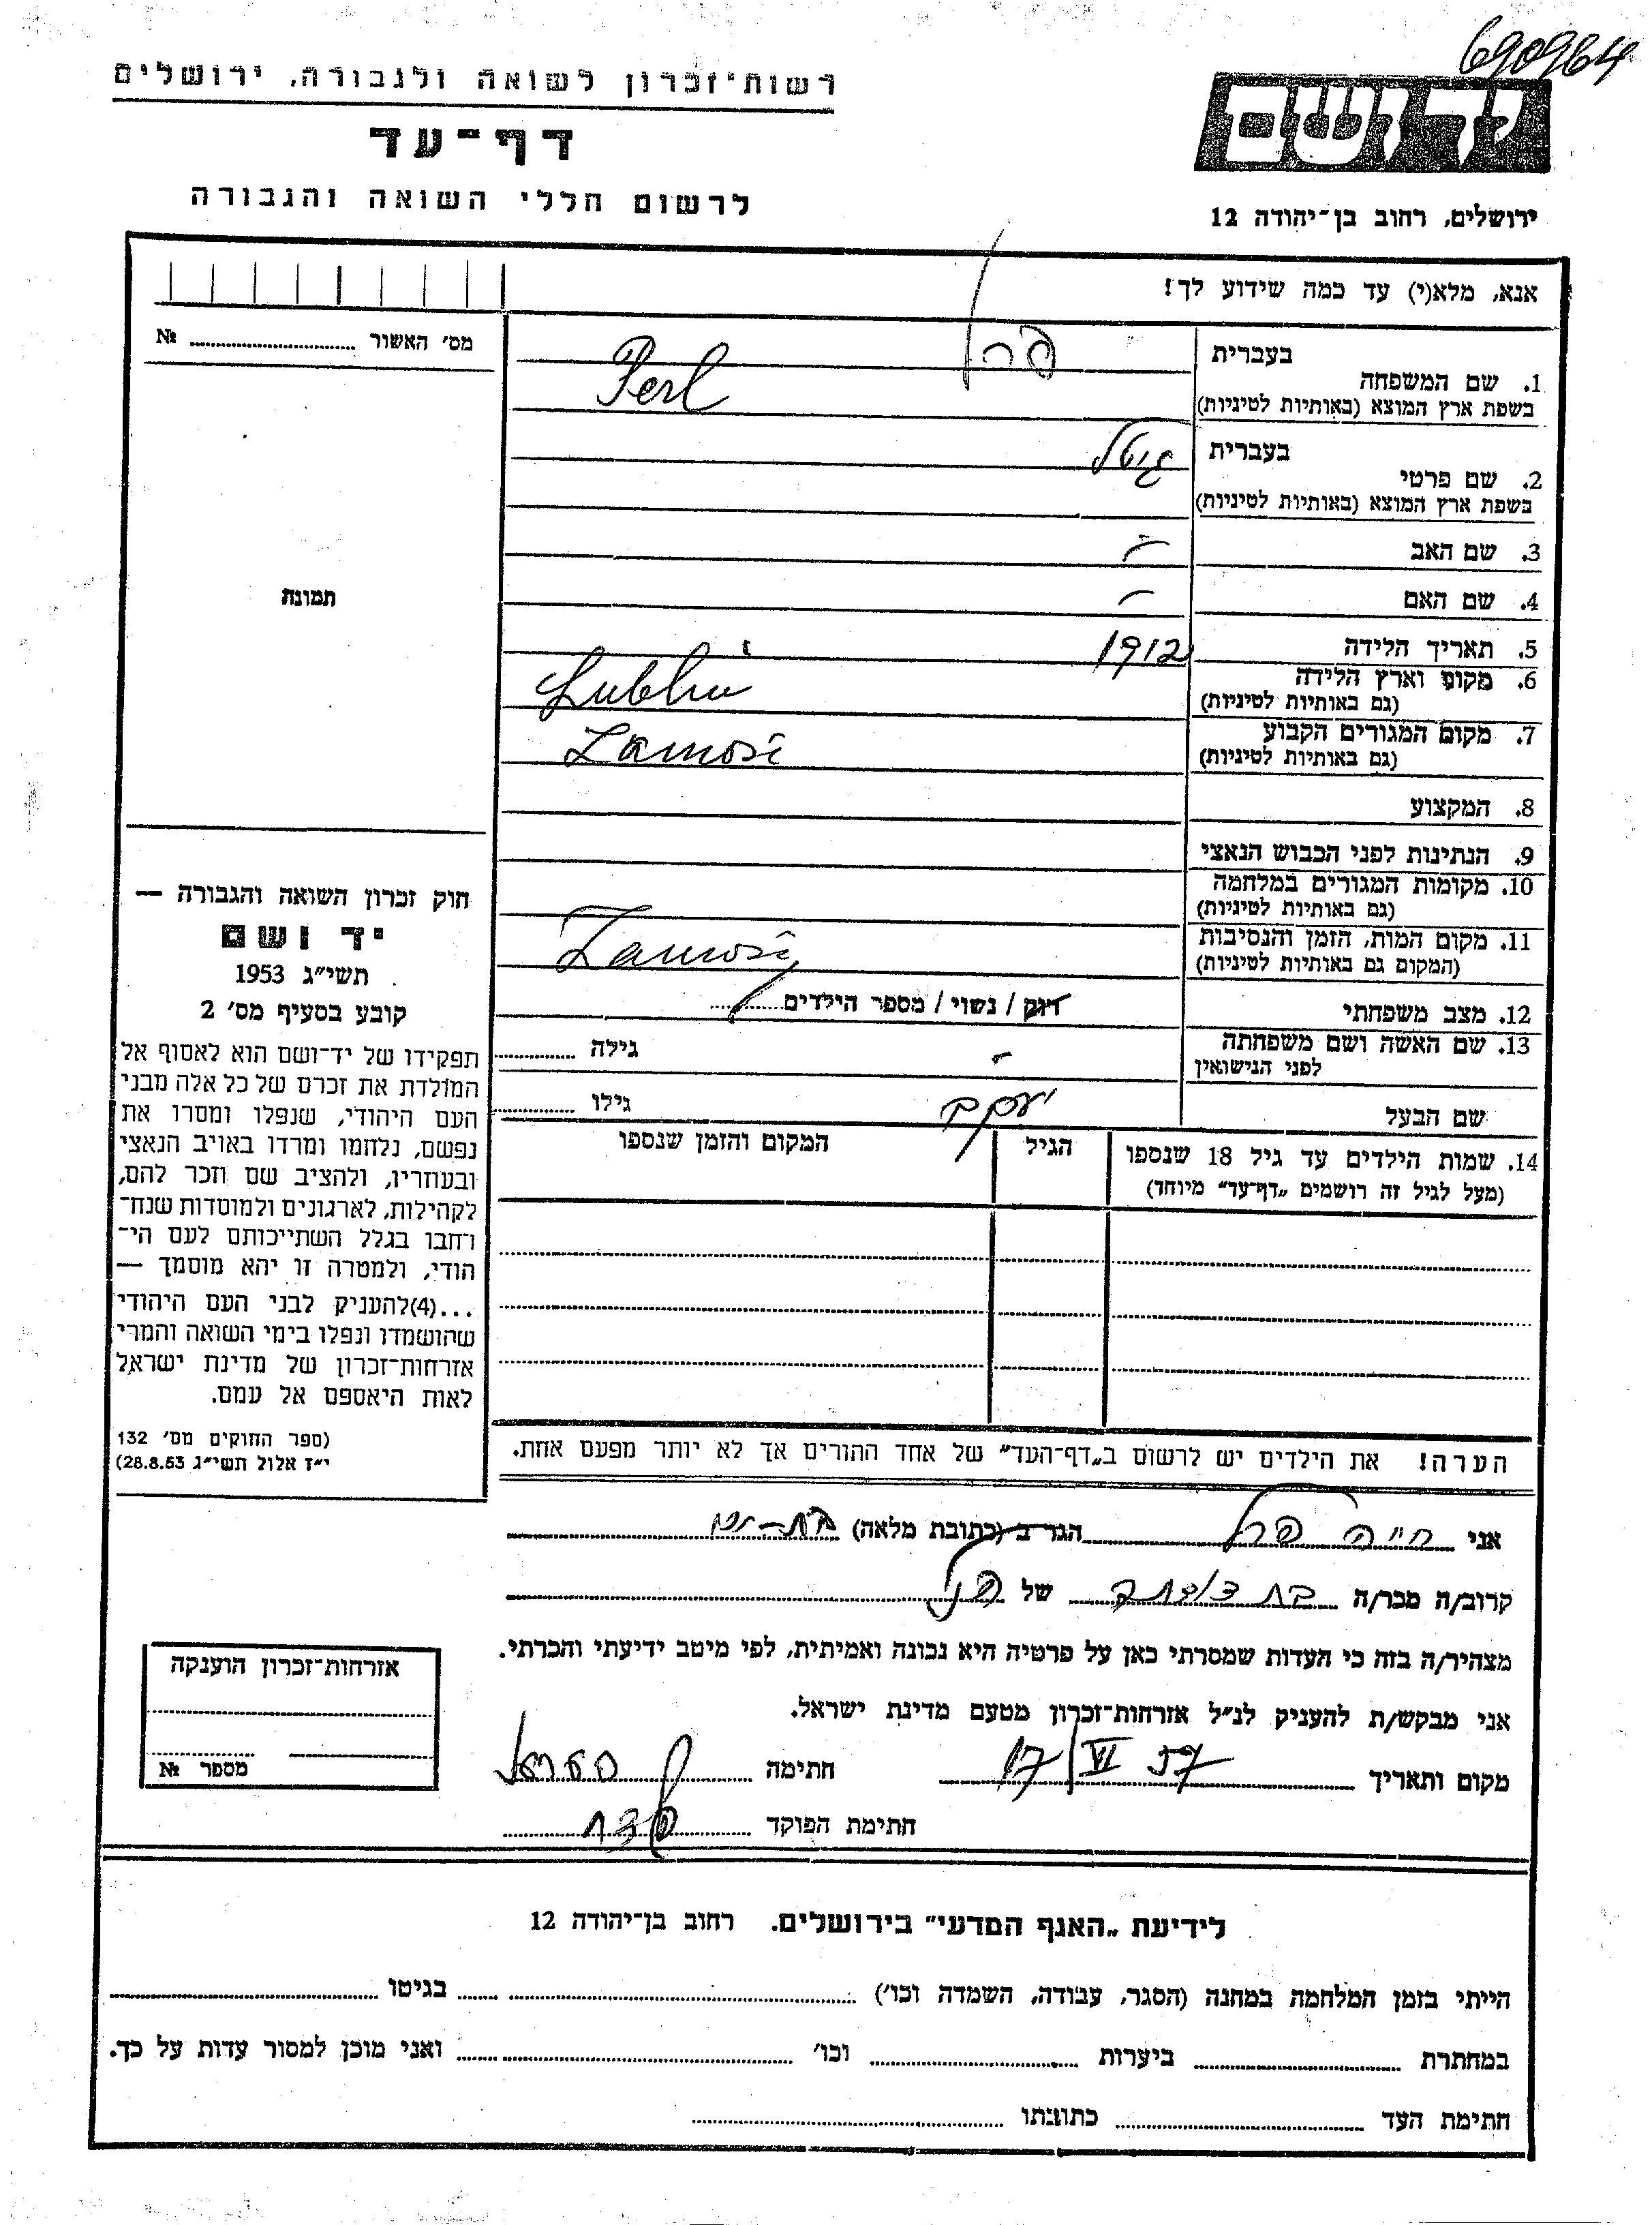 690964
רשות־זכרון לשואה ולגבורה, ירושלים
יד ושם
דף־עד
לרשום חללי השואה והגבורה
ירושלים, רחוב בן־יהודה 12
אנא, מלא(י) עד כמה שידוע לך!
מס׳ האשור № 
1. שם המשפחה
בעברית פרל
בשפת ארץ המוצא (באותיות לטיניות) Perl
2. שם פרטי
בעברית גיטל
בשפת ארץ המוצא (באותיות לטיניות)
3. שם האב –
4. שם האם –
תמונה
5. תאריך הלידה 1912
6. מקום וארץ הלידה
(גם באותיות לטיניות) Lublin
7. מקום המגורים הקבוע
(גם באותיות לטיניות) Zamość
8. המקצוע
9. הנתינות לפני הכבוש הנאצי
10. מקומות המגורים במלחמה
(גם באותיות לטיניות)
11. מקום המות, הזמן והנסיבות
(המקום גם באותיות לטיניות) Zamość
12. מצב משפחתי רווק / נשוי / מספר הילדים
13. שם האשה ושם משפחתה
לפני הנישואין - גילה
שם הבעל יעקב גילו
14. שמות הילדים עד גיל 18 שנספו
(מעל לגיל זה רושמים „דף־עד” מיוחד)
הגיל
המקום והזמן שנספו
חוק זכרון השואה והגבורה —
יד ושם
תשי״ג 1953
קובע בסעיף מס׳ 2
תפקידו של יד־ושם הוא לאסוף אל
המולדת את זכרם של כל אלה מבני
העם היהודי, שנפלו ומסרו את
נפשם, נלחמו ומרדו באויב הנאצי
ובעוזריו, ולהציב שם וזכר להם,
לקהילות, לארגונים ולמוסדות שנח־
רחבו בגלל השתייכותם לעם הי־
הודי, ולמטרה זו יהא מוסמך —
...(4)להעניק לבני העם היהודי
שהושמדו ונפלו בימי השואה והמרי
אזרחות־זכרון של מדינת ישראל
לאות היאספם אל עמם.
(ספר החוקים מס׳ 132
י״ז אלול תשי״ג 28.8.53)
הערה! את הילדים יש לרשום ב„דף־העד” של אחד ההורים אך לא יותר מפעם אחת.
אני חייה פרל הגר ב (כתובת מלאה) בת-ים
קרוב/ה מכר/ה בת דודתה של הנ״ל
מצהיר/ה בזה כי העדות שמסרתי כאן על פרטיה היא נכונה ואמיתית, לפי מיטב ידיעתי והכרתי.
אני מבקש/ת להעניק לנ״ל אזרחות־זכרון מטעם מדינת ישראל.
מקום ותאריך 17/VI 57 חתימה
חתימת הפוקד
אזרחות־זכרון הוענקה
מספר №
לידיעת „האגף המדעי” בירושלים. רחוב בן־יהודה 12
הייתי בזמן המלחמה במחנה (הסגר, עבודה, השמדה וכו׳) בגיטו
במחתרת ביערות וכו׳ ואני מוכן למסור עדות על כך.
חתימת העד כתובתו